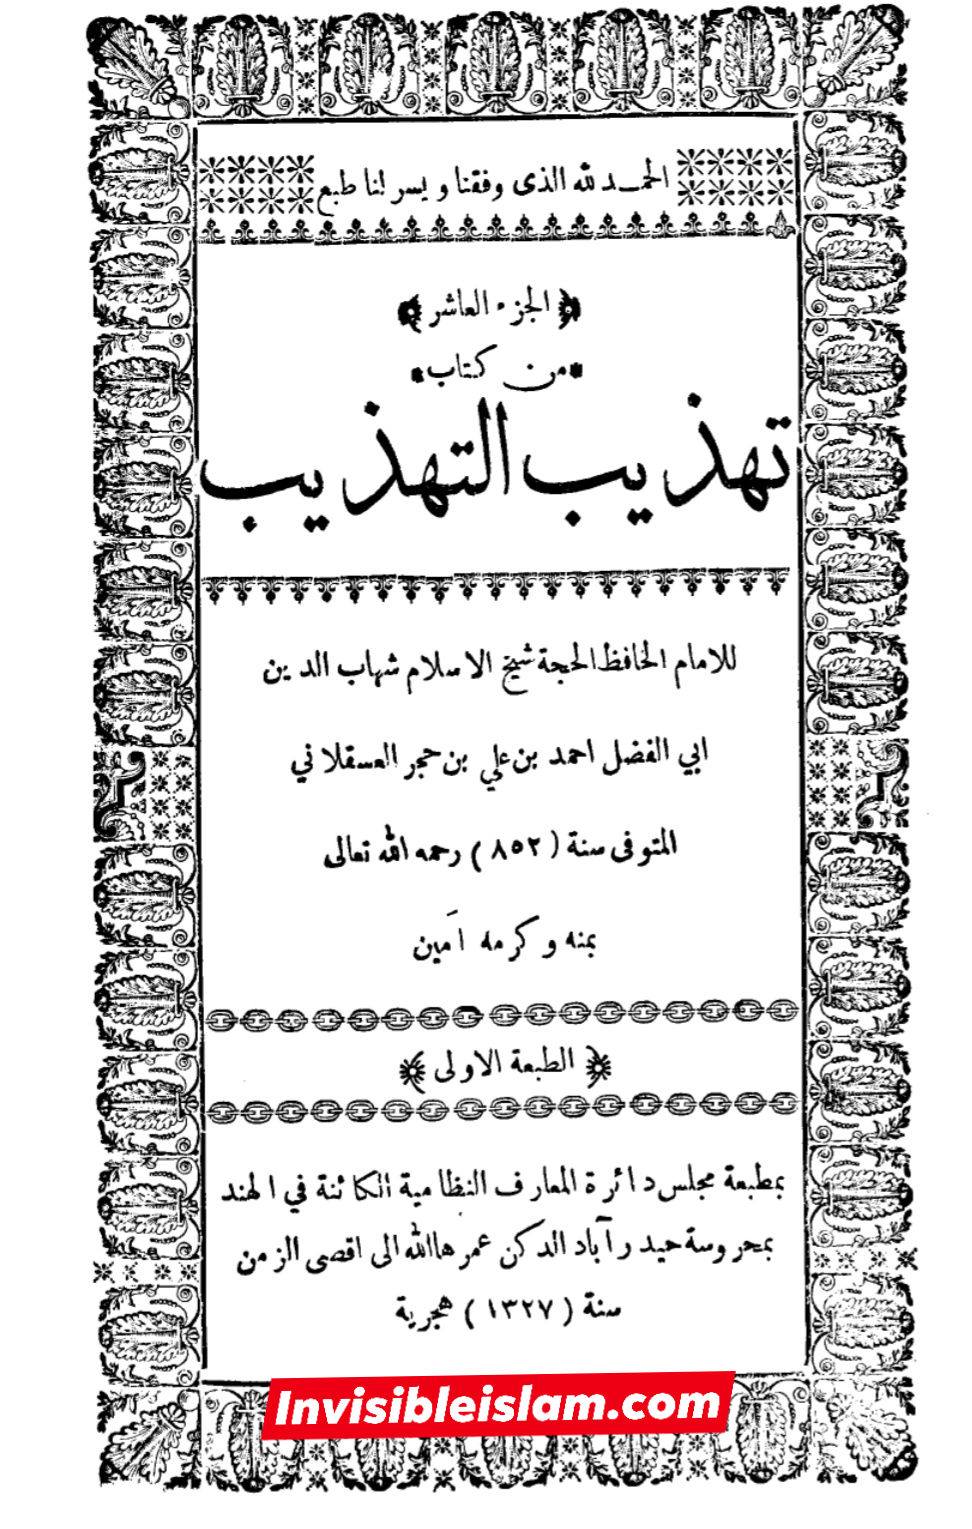 الحمد لله الذى وفقنا ويسر لنا طبع
الجزء العاشر
من كتاب
تهذيب التهذيب
للامام الحافظ الحجة شيخ الاسلام شهاب الدين
ابي الفضل احمد بن علي بن حجر العسقلاني
المتوفى سنة (٨٥٢) رحمه الله تعالى
بمنه وكرمه امين
الطبعة الاولى
بمطبعة مجلس دائرة المعارف النظامية الكائنة في الهند
بمحروسة حيدر آباد الدكن عمرها الله الى اقصى الزمن
سنة (١٣٢٧) هجرية
Invisibleislam.com